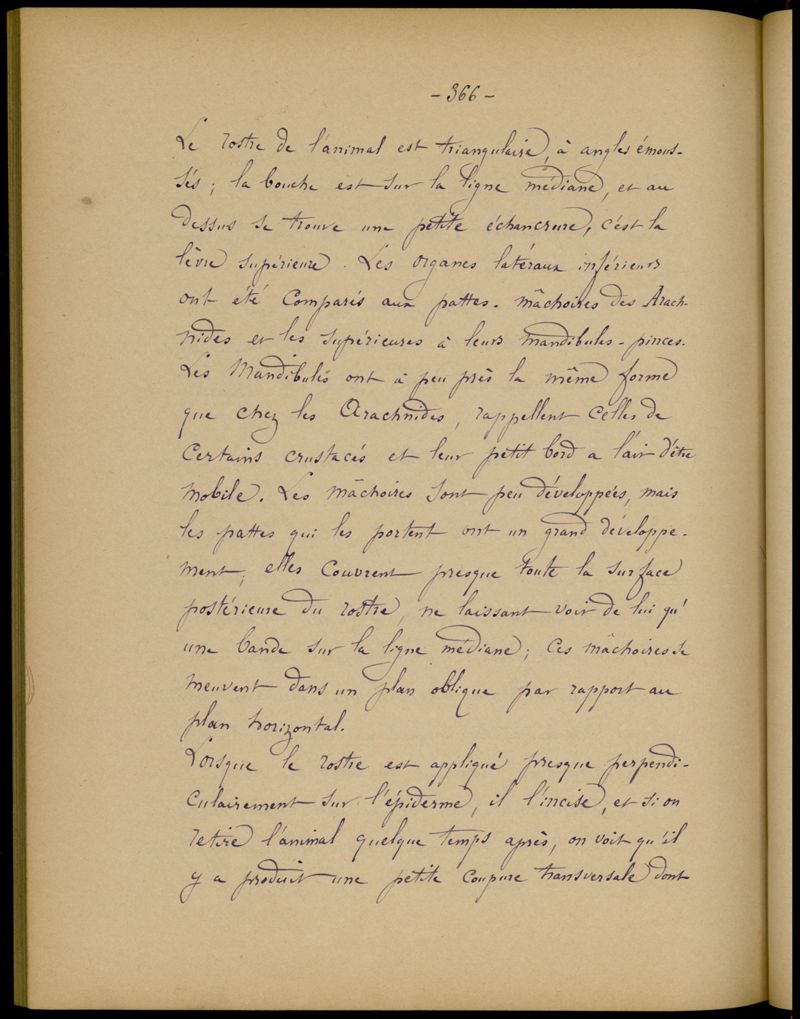 - 366 -
Le rostre de l'animal est triangulaire, à angles émous-
sés ; la bouche est sur la ligne médiane, et au
dessus se trouve une petite échancrure, c'est la
lèvre supérieure. Les organes latéraux inférieurs
ont été comparés aux pattes-mâchoires des Arach-
nides et les supérieures à leurs mandibules-pinces.
Les Mandibules ont à peu près la même forme
que chez les Arachnides, rappellent celles de
certains crustacés et leur petit bord a l'air d'être
mobile. Les mâchoires sont peu développées, mais
les pattes qui les portent ont un grand développe-
ment ; elles couvrent presque toute la surface
postérieure du rostre, ne laissant voir de lui qu'
une bande sur la ligne médiane ; ces mâchoires se
meuvent dans un plan oblique par rapport au
plan horizontal.
Lorsque le rostre est appliqué presque perpendi-
culairement sur l'épiderme, il l'incise, et si on
retire l'animal quelque temps après, on voit qu'il
y a produit une petite coupure transversale dont